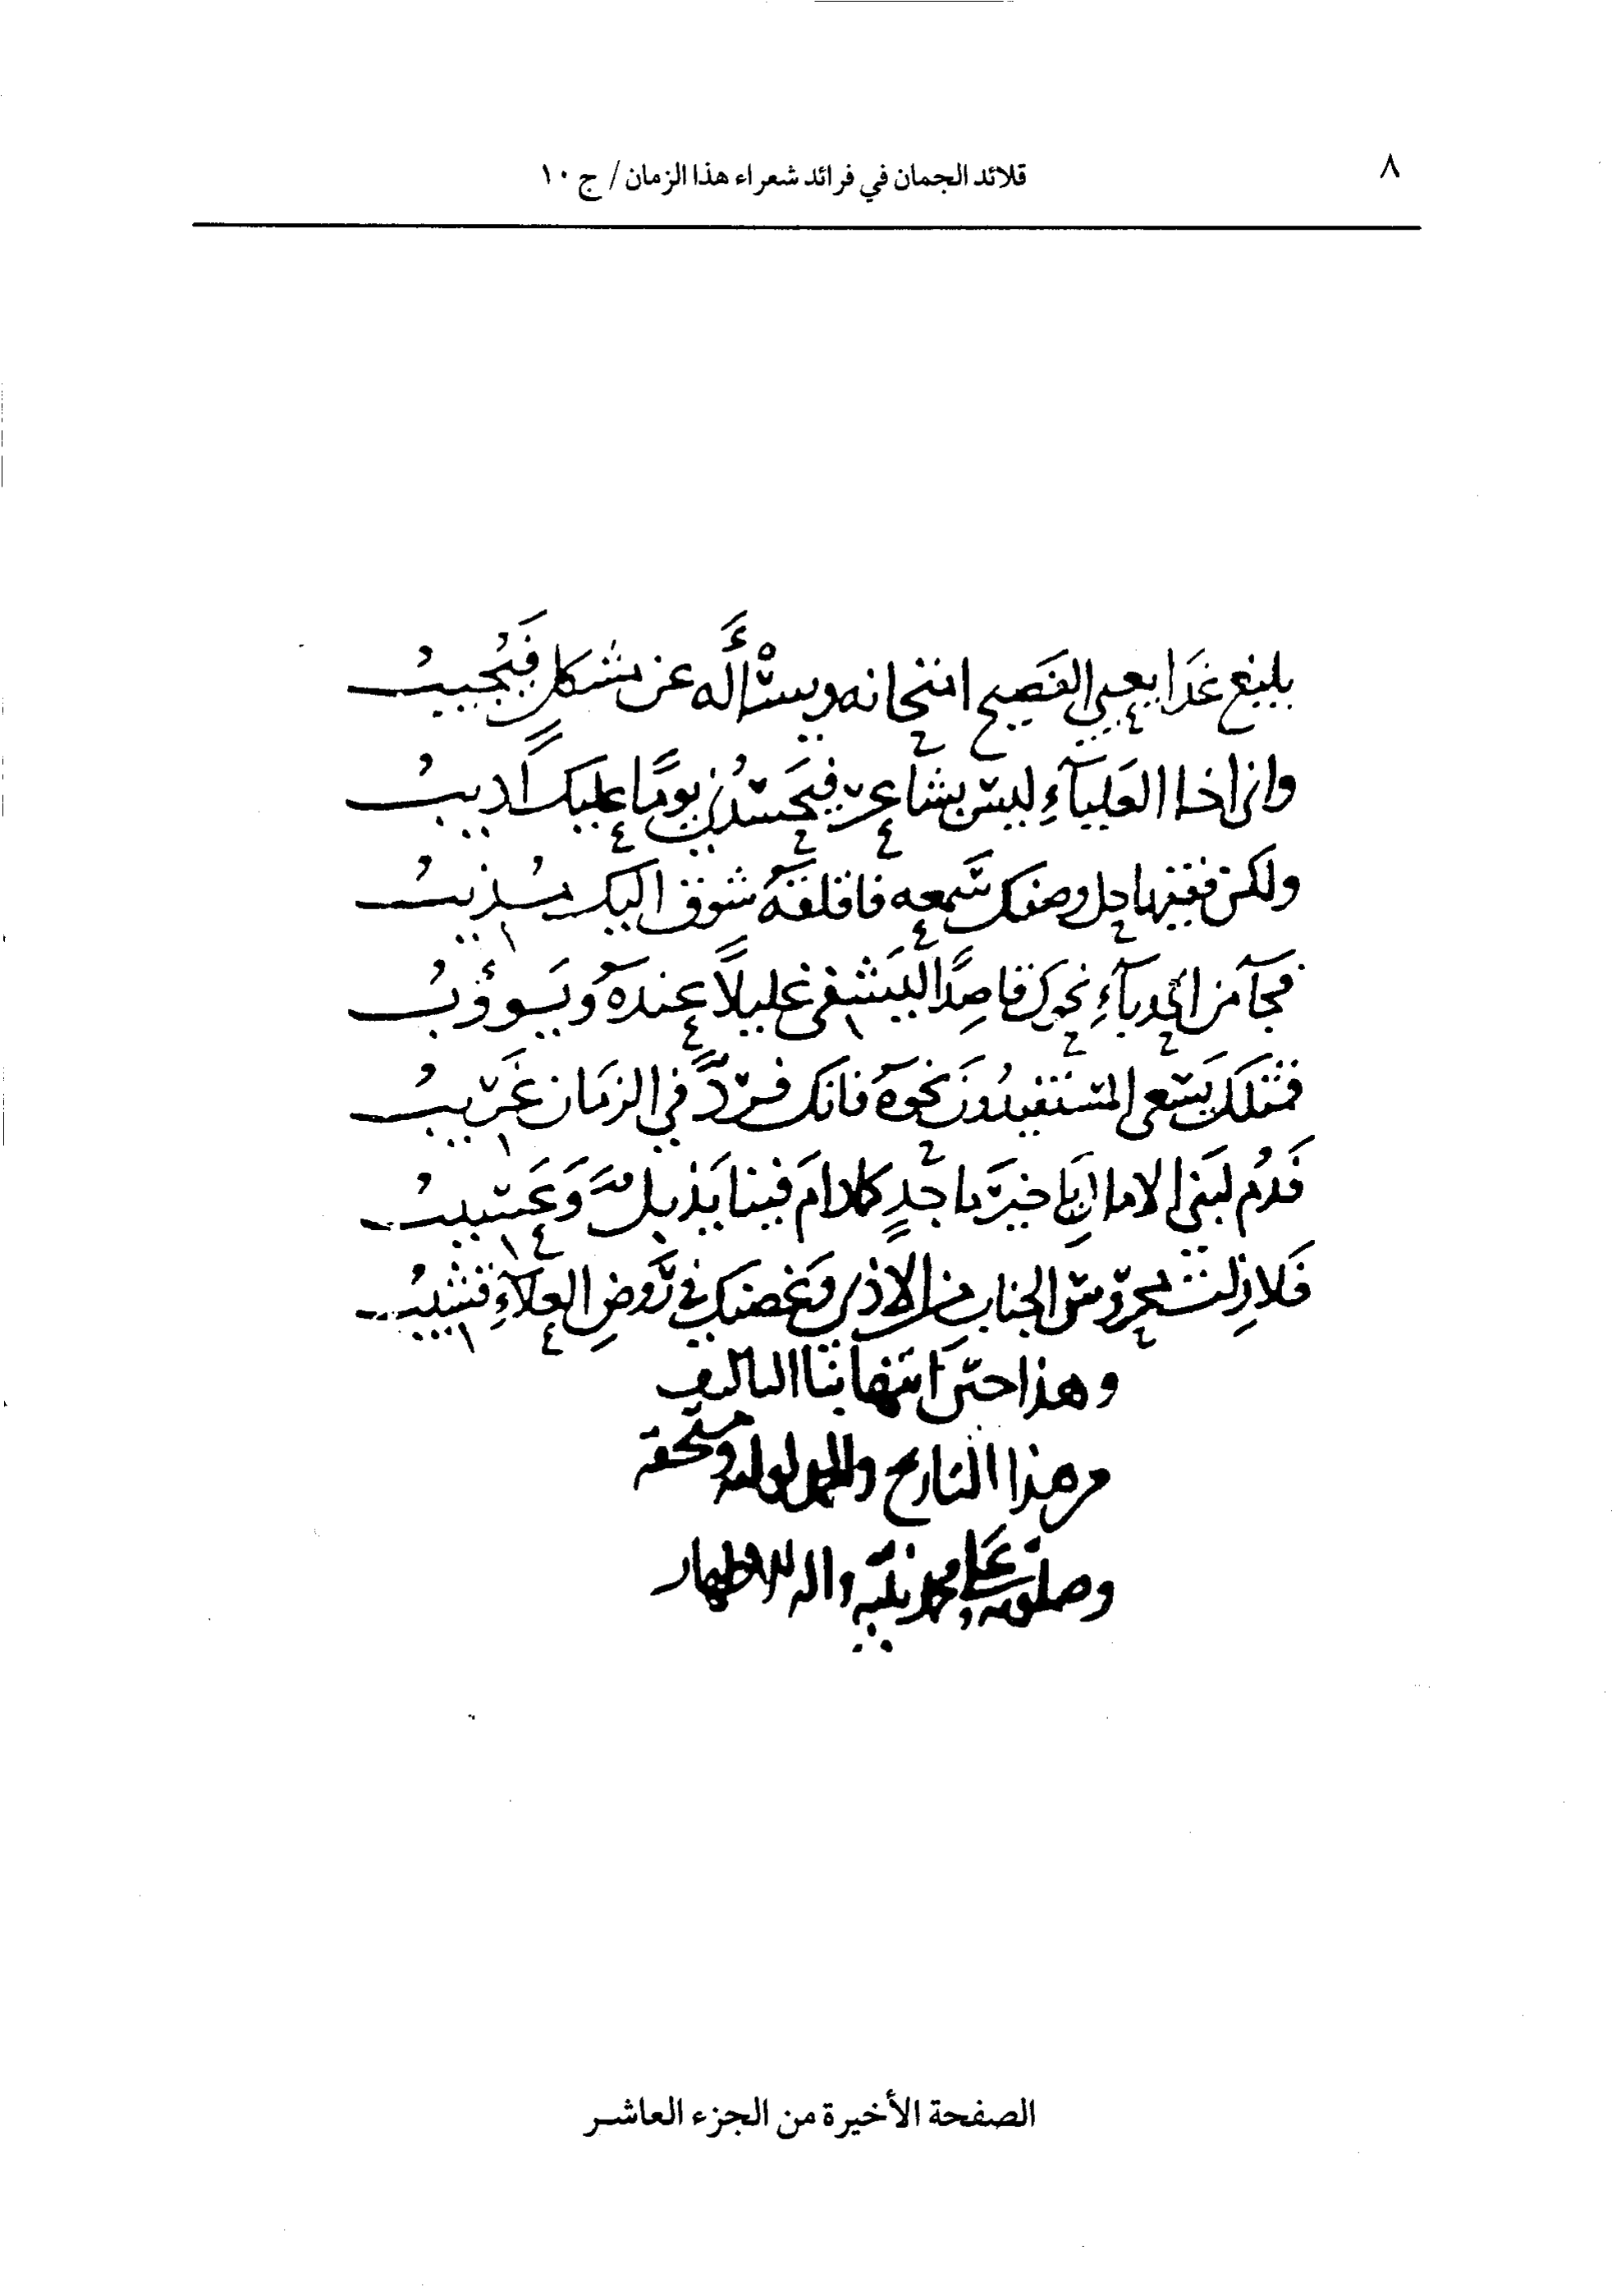 ٨
قلائد الجمان في فرائد شعراء هذا الزمان / ج ١٠
بليغ غَدَا يعيي الفَصيح امتحانه ويسْأَله عن مشكلٍ فَيُجيبُ
وان اخا العَليآءِ ليس بشاعر فيَحسُدُ يومًا عليك اديبُ
ولكن فقيرا حل وصفك سَمعه فاقلقهَ شوق اليك مُذيبُ
فجآ من الحدبآءِ نحوك قاصِدًا ليَشفى غليلاً عنده وَيَوؤبُ
فمثلك يَسعى المستفيدُونَ نحوه فانك فردٌ في الزمَان غَريبُ
فَدُم لبَنى الامال يَا خيرَ ماجَدٍ كما دامَ فينا يَذبلٌ وَعَسيبُ
فَلا زِلتَ محروس الجناب من الاذى وَغصنك في رَوضِ العلآءِ قشيبُ
وهذا حتى انتها بنا التاليف
من هذا التاريخ والحمد لوليه ومستحقه
وصلوته على محمد نبيه واله الاطهار
الصفحة الأخيرة من الجزء العاشر